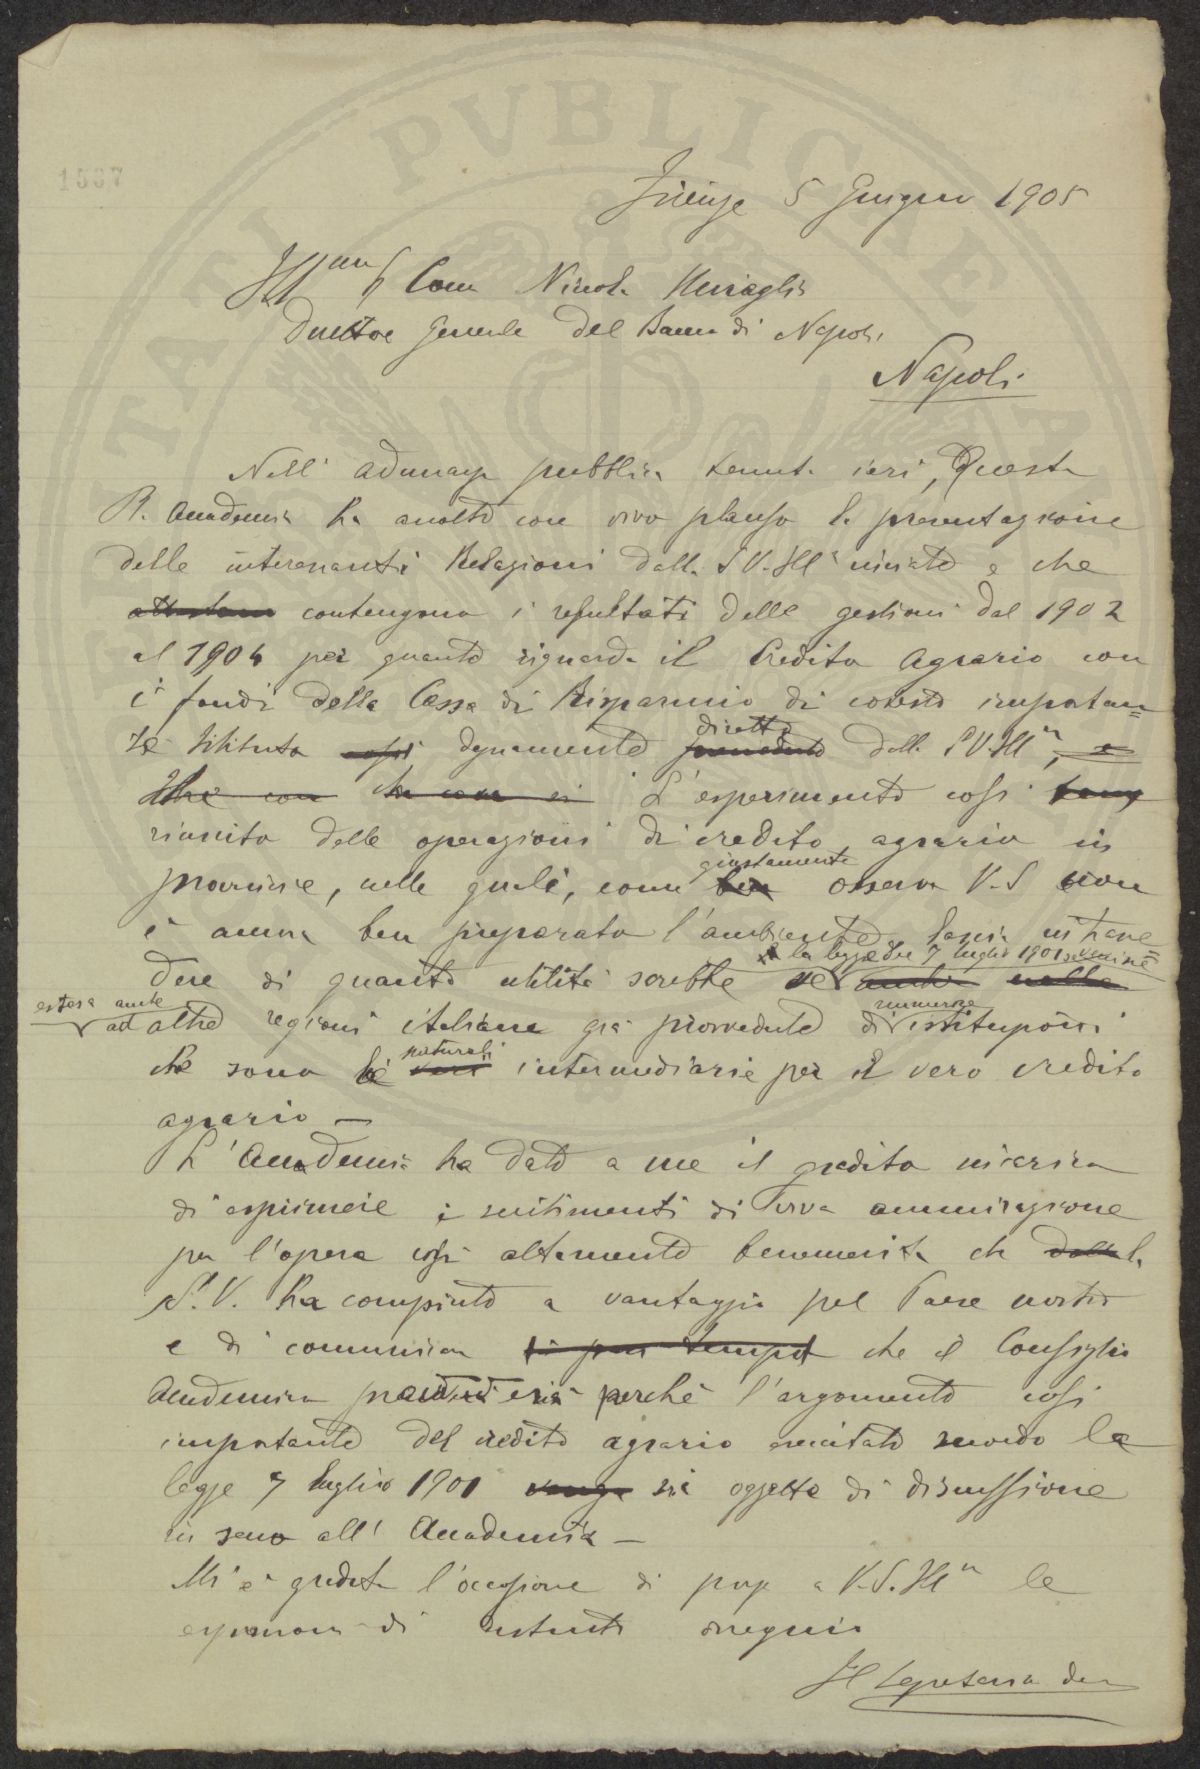 PVBLICAE VTILITATI
1567
Firenze 5 Giugno 1905
Ill.mo S. Com Nicola Miraglia
Direttore Generale del Banco di Napoli
Napoli
Nell' adunanza pubblica tenuta ieri, questa
R. Accademia ha accolto con vivo plauso la presentazione
delle interessanti Relazioni dalla S.V. Ill.a inviate e che
contengono i resultati delle gestioni dal 1902
al 1904 per quanto riguarda il Credito Agrario con
i fondi della Cassa di Risparmio di cotesto importan=
te Istituto degnamente diretto dalla S.V. Ill.a,
L'esperimento così
riuscito delle operazioni di credito agrario in
provincie, nelle quali, come giustamente osserva V.S. non
è ancora ben preparato l'ambiente, lascia inten
dere di quanta utilità sarebbe se la legge del 7 luglio 1901 venisse
estesa anche ad altre regioni italiane già provvedute di numerose istituzioni
che sono le naturali intermediarie per il vero credito
agrario —
L'Accademia ha dato a me il gradito incarico
di esprimere i sentimenti di viva ammirazione
per l'opera così altamente benemerita che la
S.V. ha compiuto a vantaggio pel Paese nostro
e di comunicare che il Consiglio
Accademico perchè l'argomento così
importante del credito agrario esercitato secondo la
legge 7 luglio 1901 sia oggetto di discussione
in seno all' Accademia —
Mi è gradita l'occasione di porge a V.S. Ill.a le
espressioni di distinto ossequio
Il Segretario